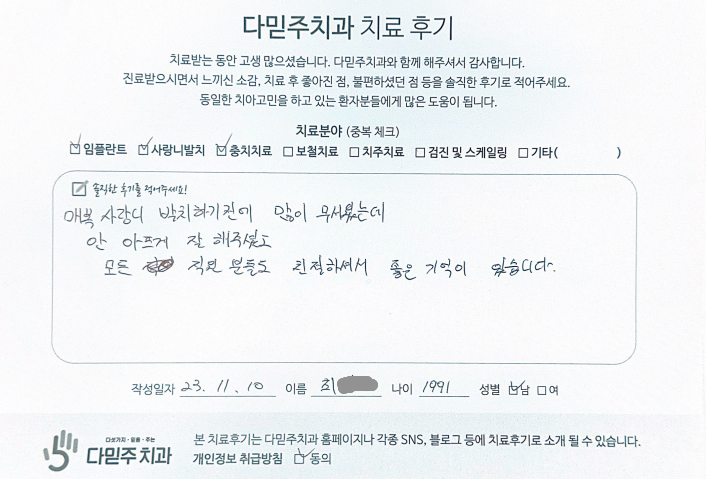 다믿주치과 치료 후기
치료받는 동안 고생 많으셨습니다. 다믿주치과와 함께 해주셔서 감사합니다.
진료받으시면서 느끼신 소감, 치료 후 좋아진 점, 불편하셨던 점 등을 솔직한 후기로 적어주세요.
동일한 치아고민을 하고 있는 환자분들에게 많은 도움이 됩니다.
치료분야 (중복 체크)
☑임플란트 ☑사랑니발치 ☑충치치료 □보철치료 □치주치료 □검진 및 스케일링 □기타( )
솔직한 후기를 적어주세요!
매복 사랑니 발치하기전에 많이 무서웠는데
안 아프게 잘 해주셨고
모든 직원 분들도 친절하셔서 좋은 기억이 있습니다.
작성일자 23. 11. 10 이름 최 나이 1991 성별 ☑남 □여
다섯가지·믿음·주는
다믿주치과
본 치료후기는 다믿주치과 홈페이지나 각종 SNS, 블로그 등에 치료후기로 소개 될 수 있습니다.
개인정보 취급방침 ☑동의